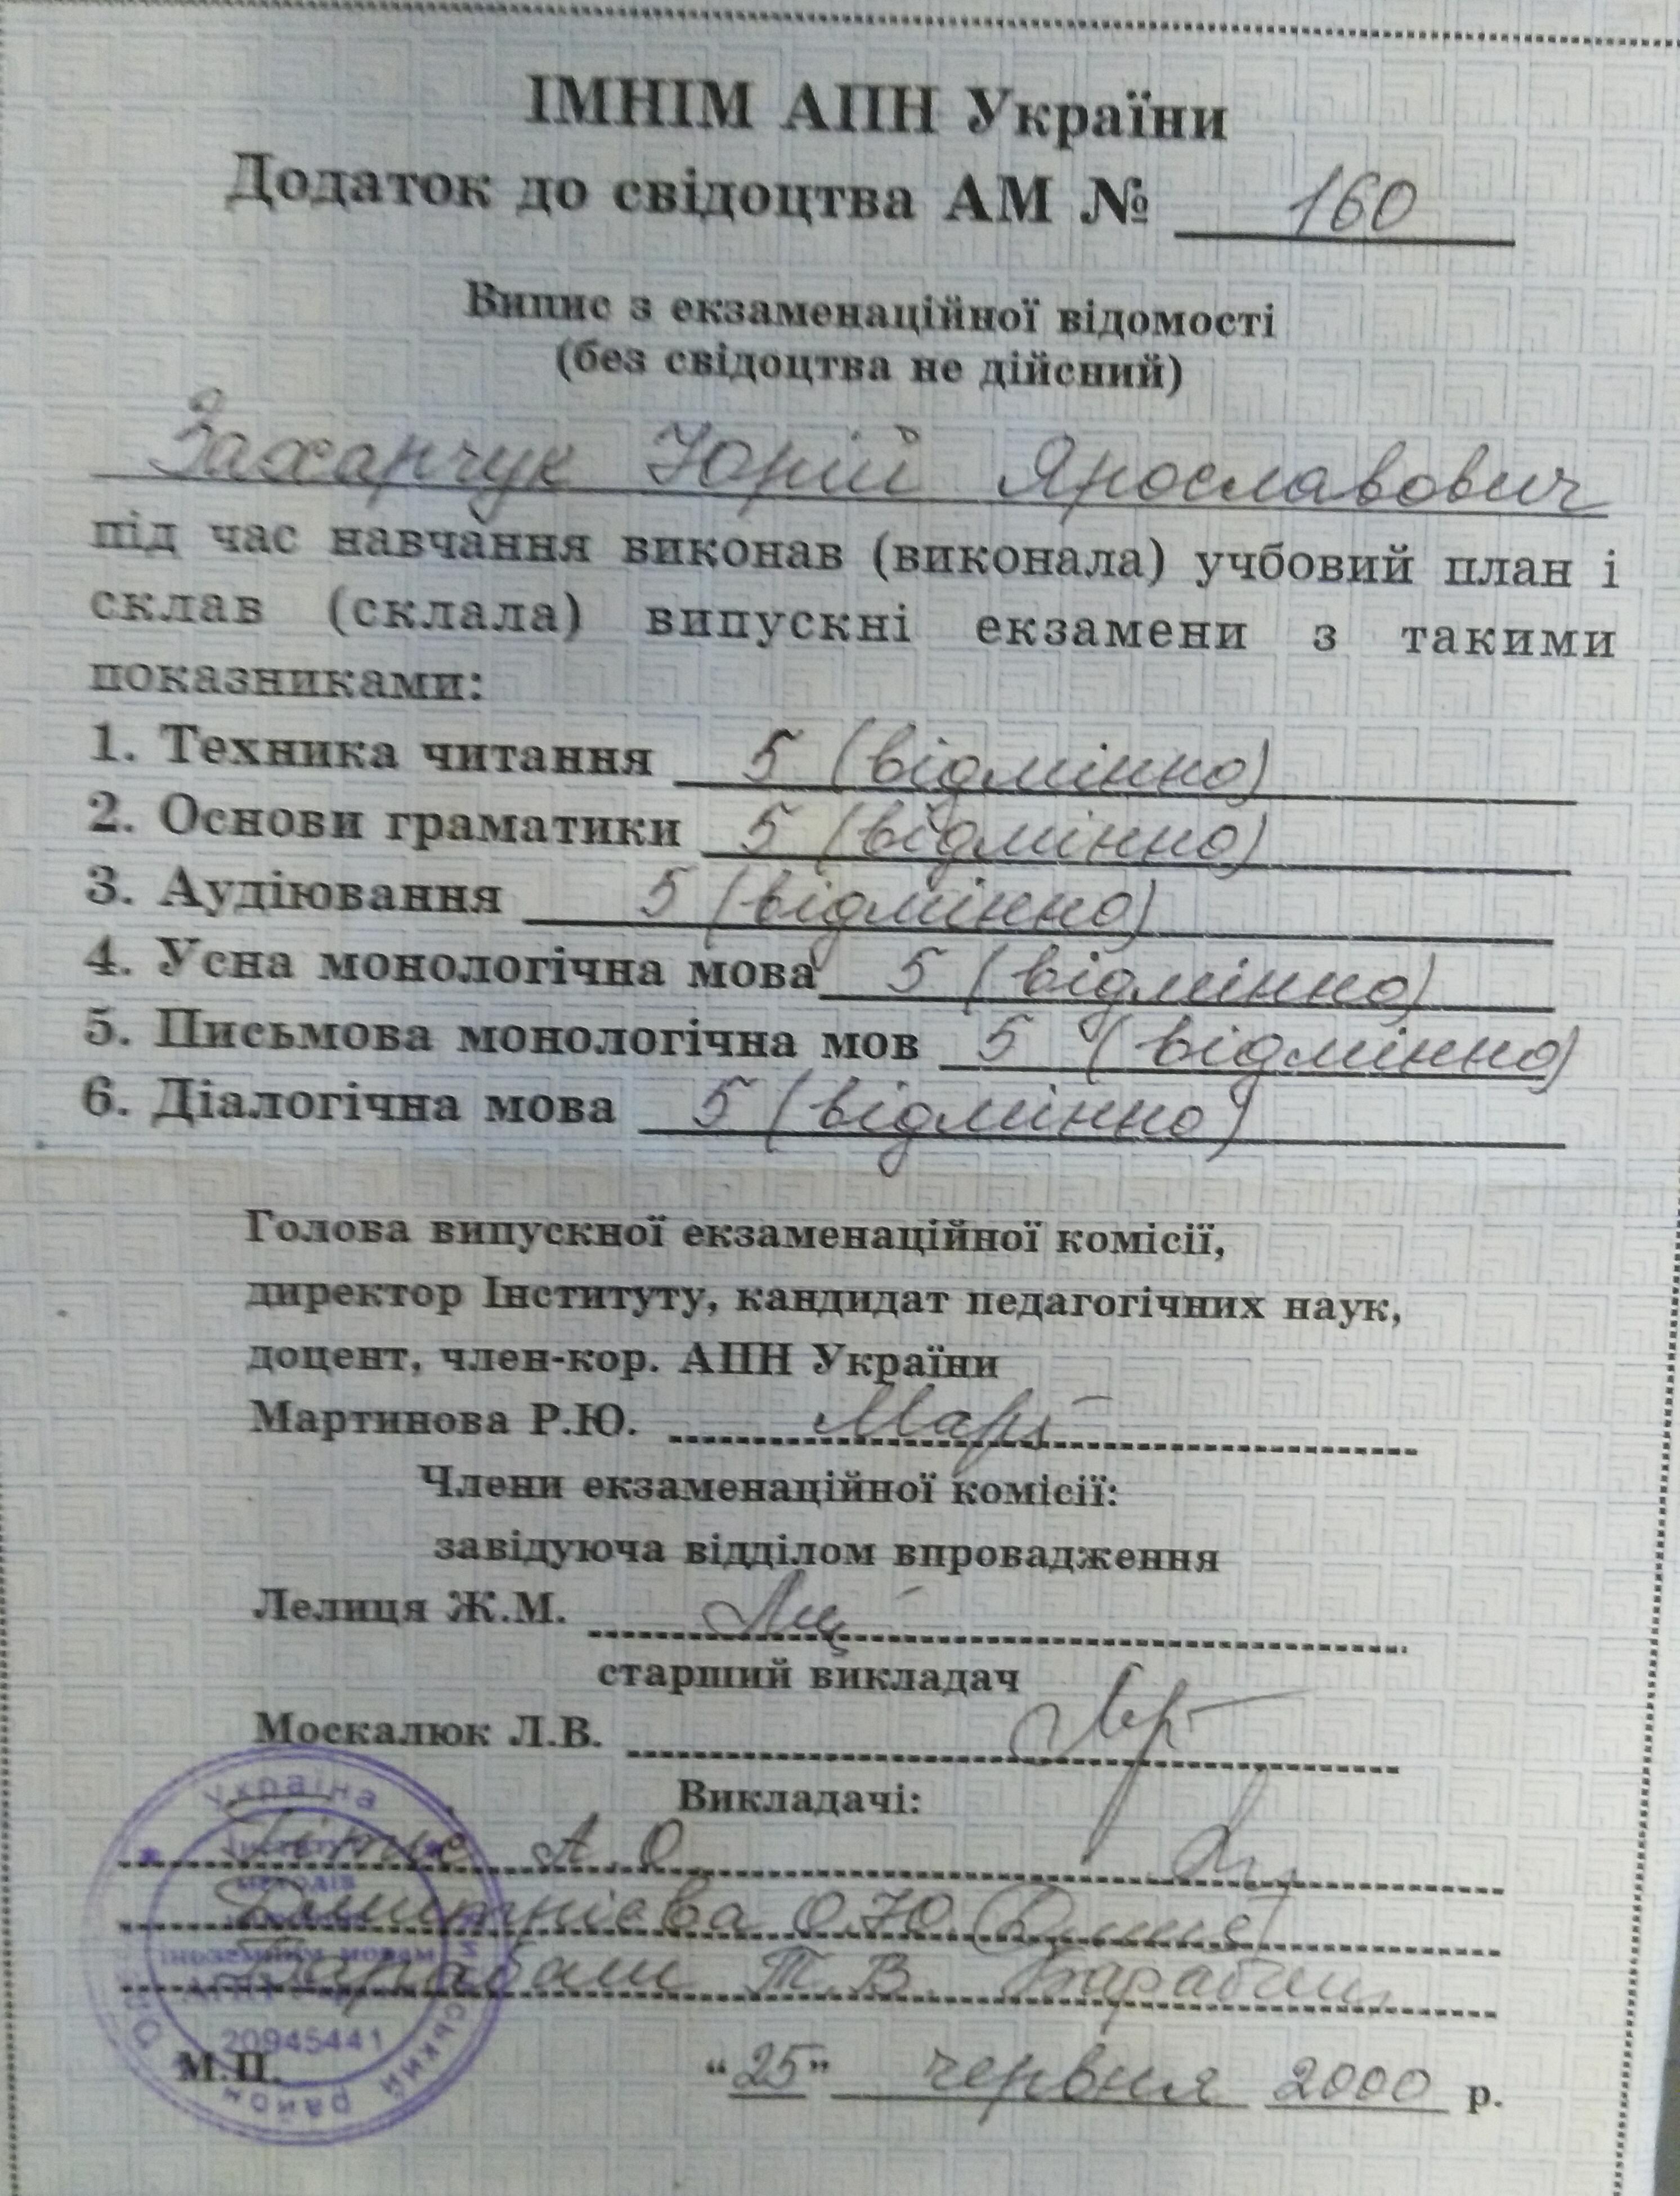 ІМНІМ АПН України
Додаток до свідоцтва АМ № 160
Випис з екзаменаційної відомості
(без свідоцтва не дійсний)
Захарчук Юрій Ярославович
під час навчання виконав (виконала) учбовий план і
склав (склала) випускні екзамени з такими
показниками:
1. Техника читання 5 (відмінно)
2. Основи граматики 5 (відмінно)
3. Аудіювання 5 (відмінно)
4. Усна монологічна мова 5 (відмінно)
5. Письмова монологічна мов 5 (відмінно)
6. Діалогічна мова 5 (відмінно)
Голова випускної екзаменаційної комісії,
директор Інституту, кандидат педагогічних наук,
доцент, член-кор. АПН України
Мартинова Р.Ю.
Члени екзаменаційної комісії:
завідуюча відділом впровадження
Лелиця Ж.М.
старший викладач
Москалюк Л.В.
Викладачі:
А.О.
О.Ю.
Барабаш Т.В. Барабаш
Україна
методів
іноземним мовам
район
20945441
М.П.
“25” червня 2000 р.